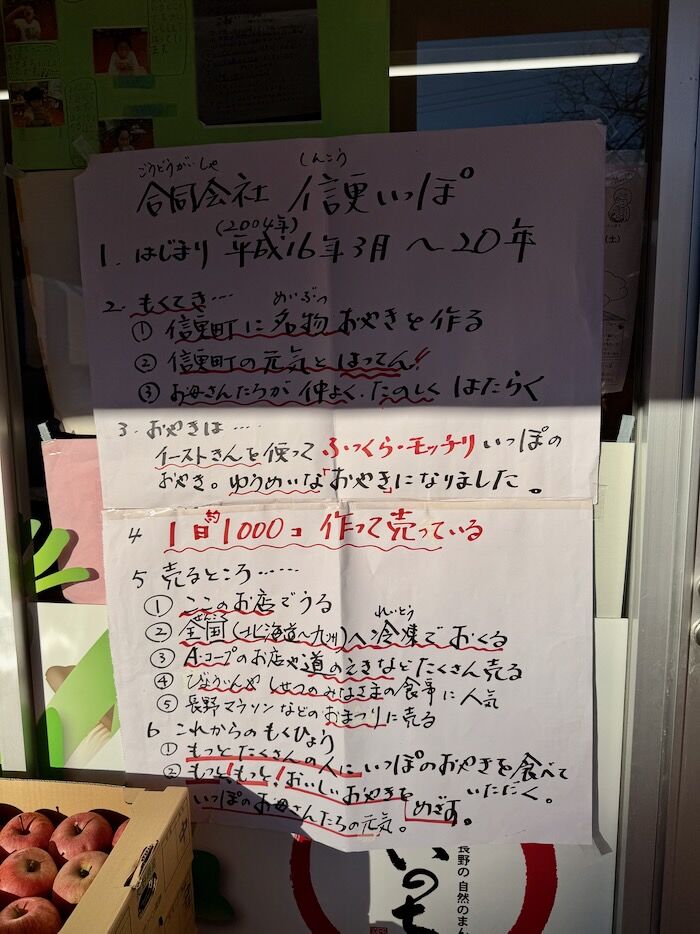 ごうどうがいしゃ しんこう
合同会社 信更いっぽ
(2004年)
1. はじまり 平成16年3月 〜20年
2. もくてき…
めいぶつ
① 信更町に名物おやきを作る
② 信更町の元気とはってん!!
③ お母さんたちが仲よく・たのしくはたらく
3. おやきは….
イーストきんを使って ふっくら・モッチリ いっぽの
おやき。ゆうめいな「おやき」になりました。
4 1日約1000コ 作って売っている
5 売るところ……
① ここのお店でうる
ぜんこく れいとう
② 全国(北海道〜九州)へ冷凍でおくる
③ A・コープのお店や道のえきなどたくさん売る
④ びょういんや しせつのみなさまの食事に人気
⑤ 長野マラソンなどのおまつりに売る
6 これからのもくひょう
① もっとたくさんの人にいっぽのおやきを食べて
いただく。
② もっと!もっと!おいしいおやきをめざす。
いっぽのお母さんたちの元気。
(土)
いのち
長野の自然のまん